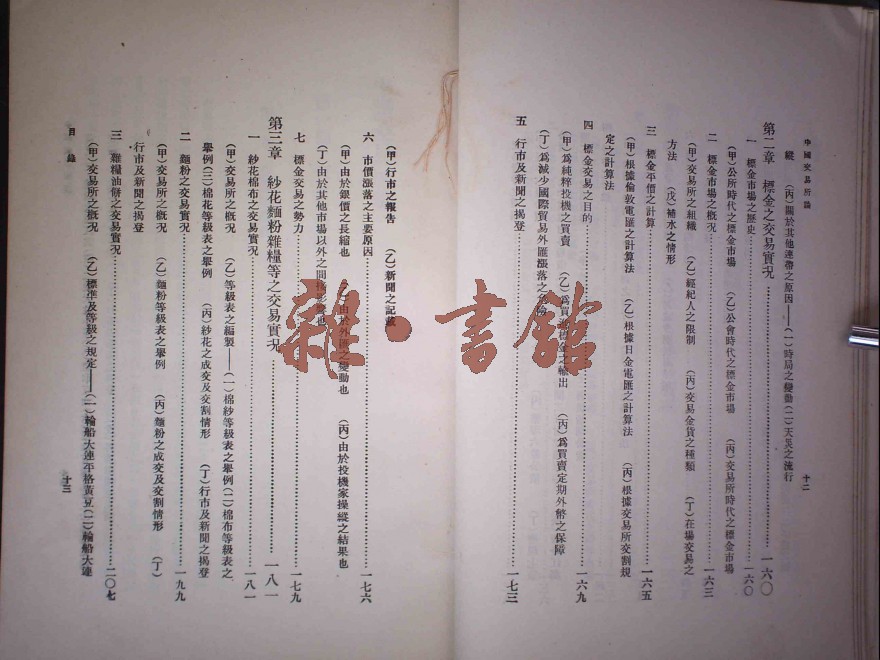 中國交易所論
十二
縱 (丙)關於其他連帶之原因——(一)時局之變動(二)天災之流行
第二章 標金之交易實况…………一六〇
一 標金市場之歷史…………一六〇
(甲)公所時代之標金市場 (乙)公會時代之標金市場 (丙)交易所時代之標金市場
二 標金市場之概况…………一六三
(甲)交易所之組織 (乙)經紀人之限制 (丙)交易金貨之種類 (丁)在場交易之
方法 (戊)補水之情形
三 標金平價之計算…………一六五
(甲)根據倫敦電匯之計算法 (乙)根據日金電匯之計算法 (丙)根據交易所交割規
定之計算法
四 標金交易之目的…………一六九
(甲)爲純粹投機之買賣 (乙)爲買進標金之輸出 (丙)爲買賣定期外幣之保障
(丁)爲減少國際貿易外匯漲落之
五 行市及新聞之揭登…………一七三
(甲)行市之報告 (乙)新聞之記載
六 市價漲落之主要原因…………一七六
(甲)由於銀價之長縮也 (乙)由於外匯之變動也 (丙)由於投機家操縱之結果也
(丁)由於其他市場以外之間接影響也
七 標金交易之勢力…………一七九
第三章 紗花麵粉雜糧等之交易實况…………一八一
一 紗花棉布之交易實况…………一八一
(甲)交易所之概况 (乙)等級表之編製——(一)棉紗等級表之舉例(二)棉布等級表之
舉例(三)棉花等級表之舉例 (丙)紗花之成交及交割情形 (丁)行市及新聞之揭登
二 麵粉之交易實况…………一九九
(甲)交易所之概况 (乙)麵粉等級表之舉例 (丙)麵粉之成交及交割情形 (丁)
行市及新聞之揭登
三 雜糧油餅之交易實况…………二〇七
(甲)交易所之概况 (乙)標準及等級之規定——(一)輪船大連平格黃豆(二)輪船大連
目錄
十三
雜·書館